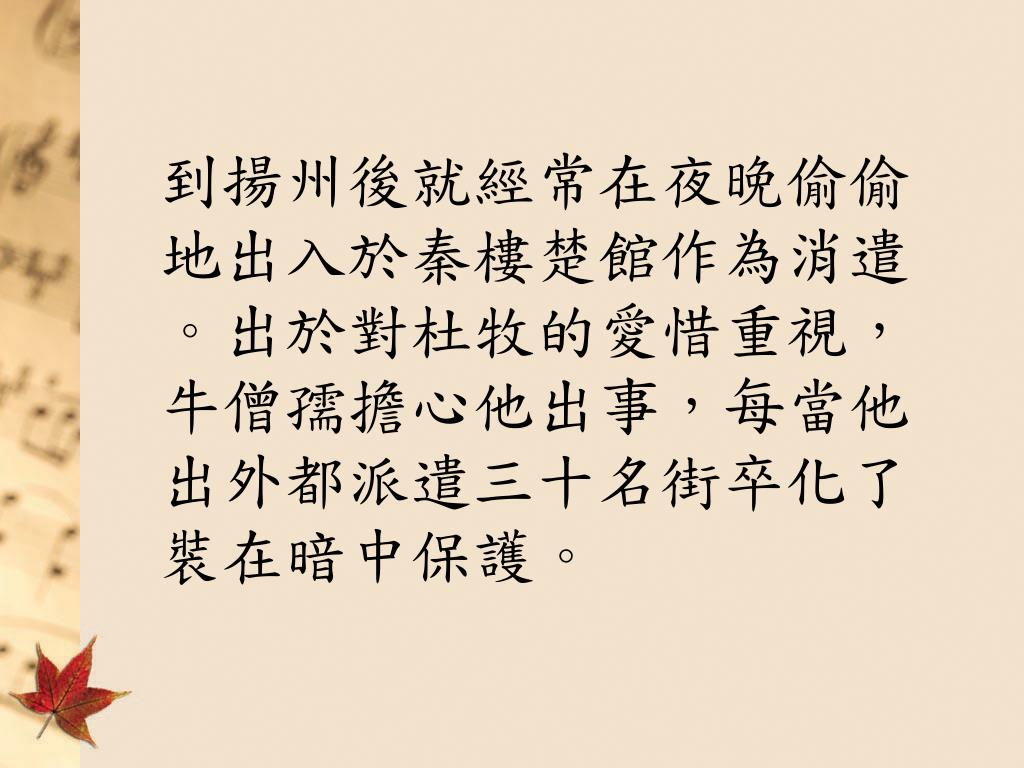 到揚州後就經常在夜晚偷偷
地出入於秦樓楚館作為消遣
。出於對杜牧的愛惜重視，
牛僧孺擔心他出事，每當他
出外都派遣三十名街卒化了
裝在暗中保護。